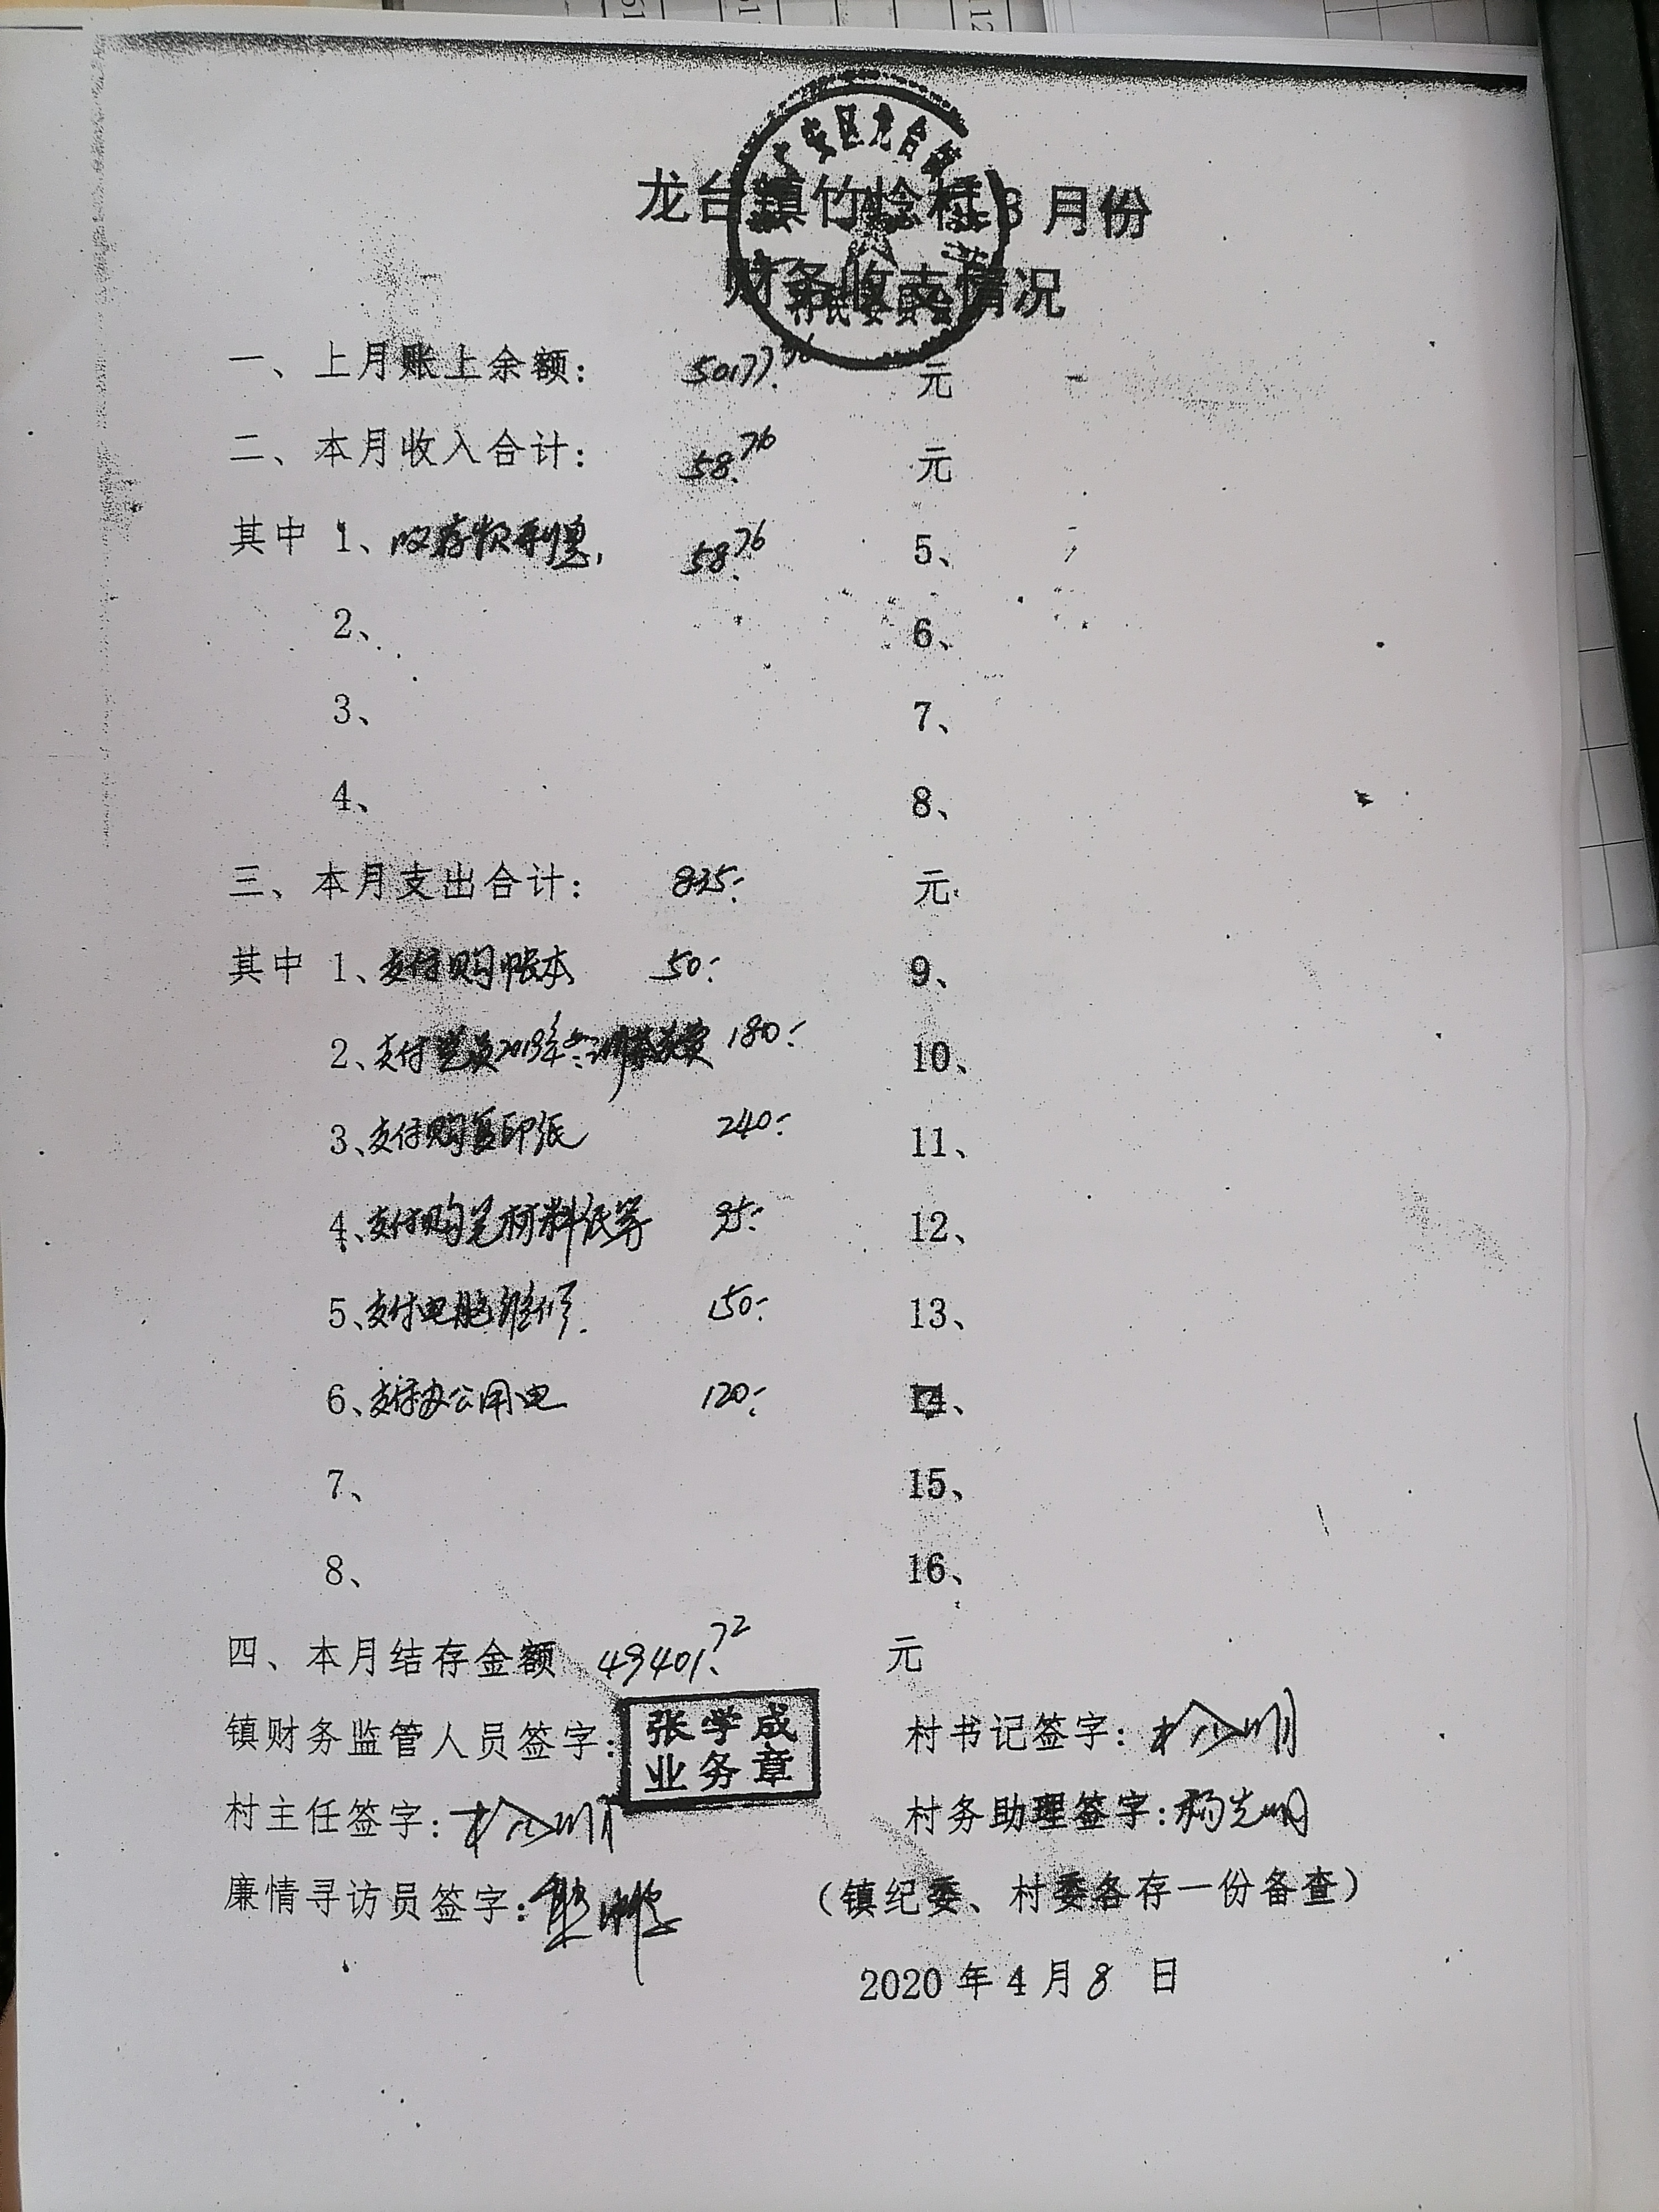 龙台镇竹 村3月份
财务收支情况
一、上月账上余额： 50177.96 元
二、本月收入合计： 58.76 元
其中 1、收存款利息， 58.76 5、
2、 6、
3、 7、
4、 8、
三、本月支出合计： 835： 元
其中 1、支付购帐本 50： 9、
2、支付党员2019年 180： 10、
3、支付购复印纸 240： 11、
4、支付购 材料纸等 95： 12、
5、支付电脑维修. 150： 13、
6、支付办公用电 120： 14、
7、 15、
8、 16、
四、本月结存金额 49401.72 元
镇财务监管人员签字： 张学成 业务章 村书记签字：
村主任签字： 村务助理签字：杨光明
廉情寻访员签字： （镇纪委、村委各存一份备查）
2020年4月8日